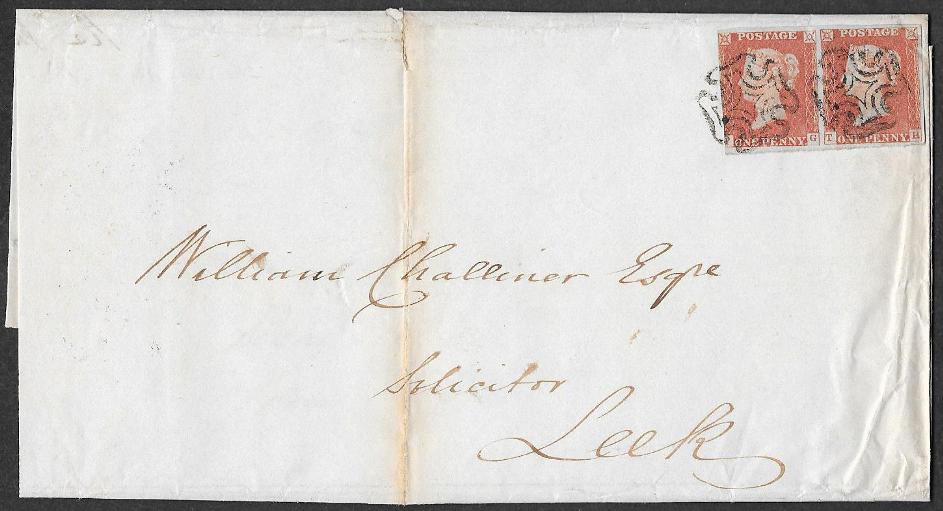 POSTAGE POSTAGE
ONE PENNY G T ONE PENNY H
William Challinor Esqre
Solicitor
Leek